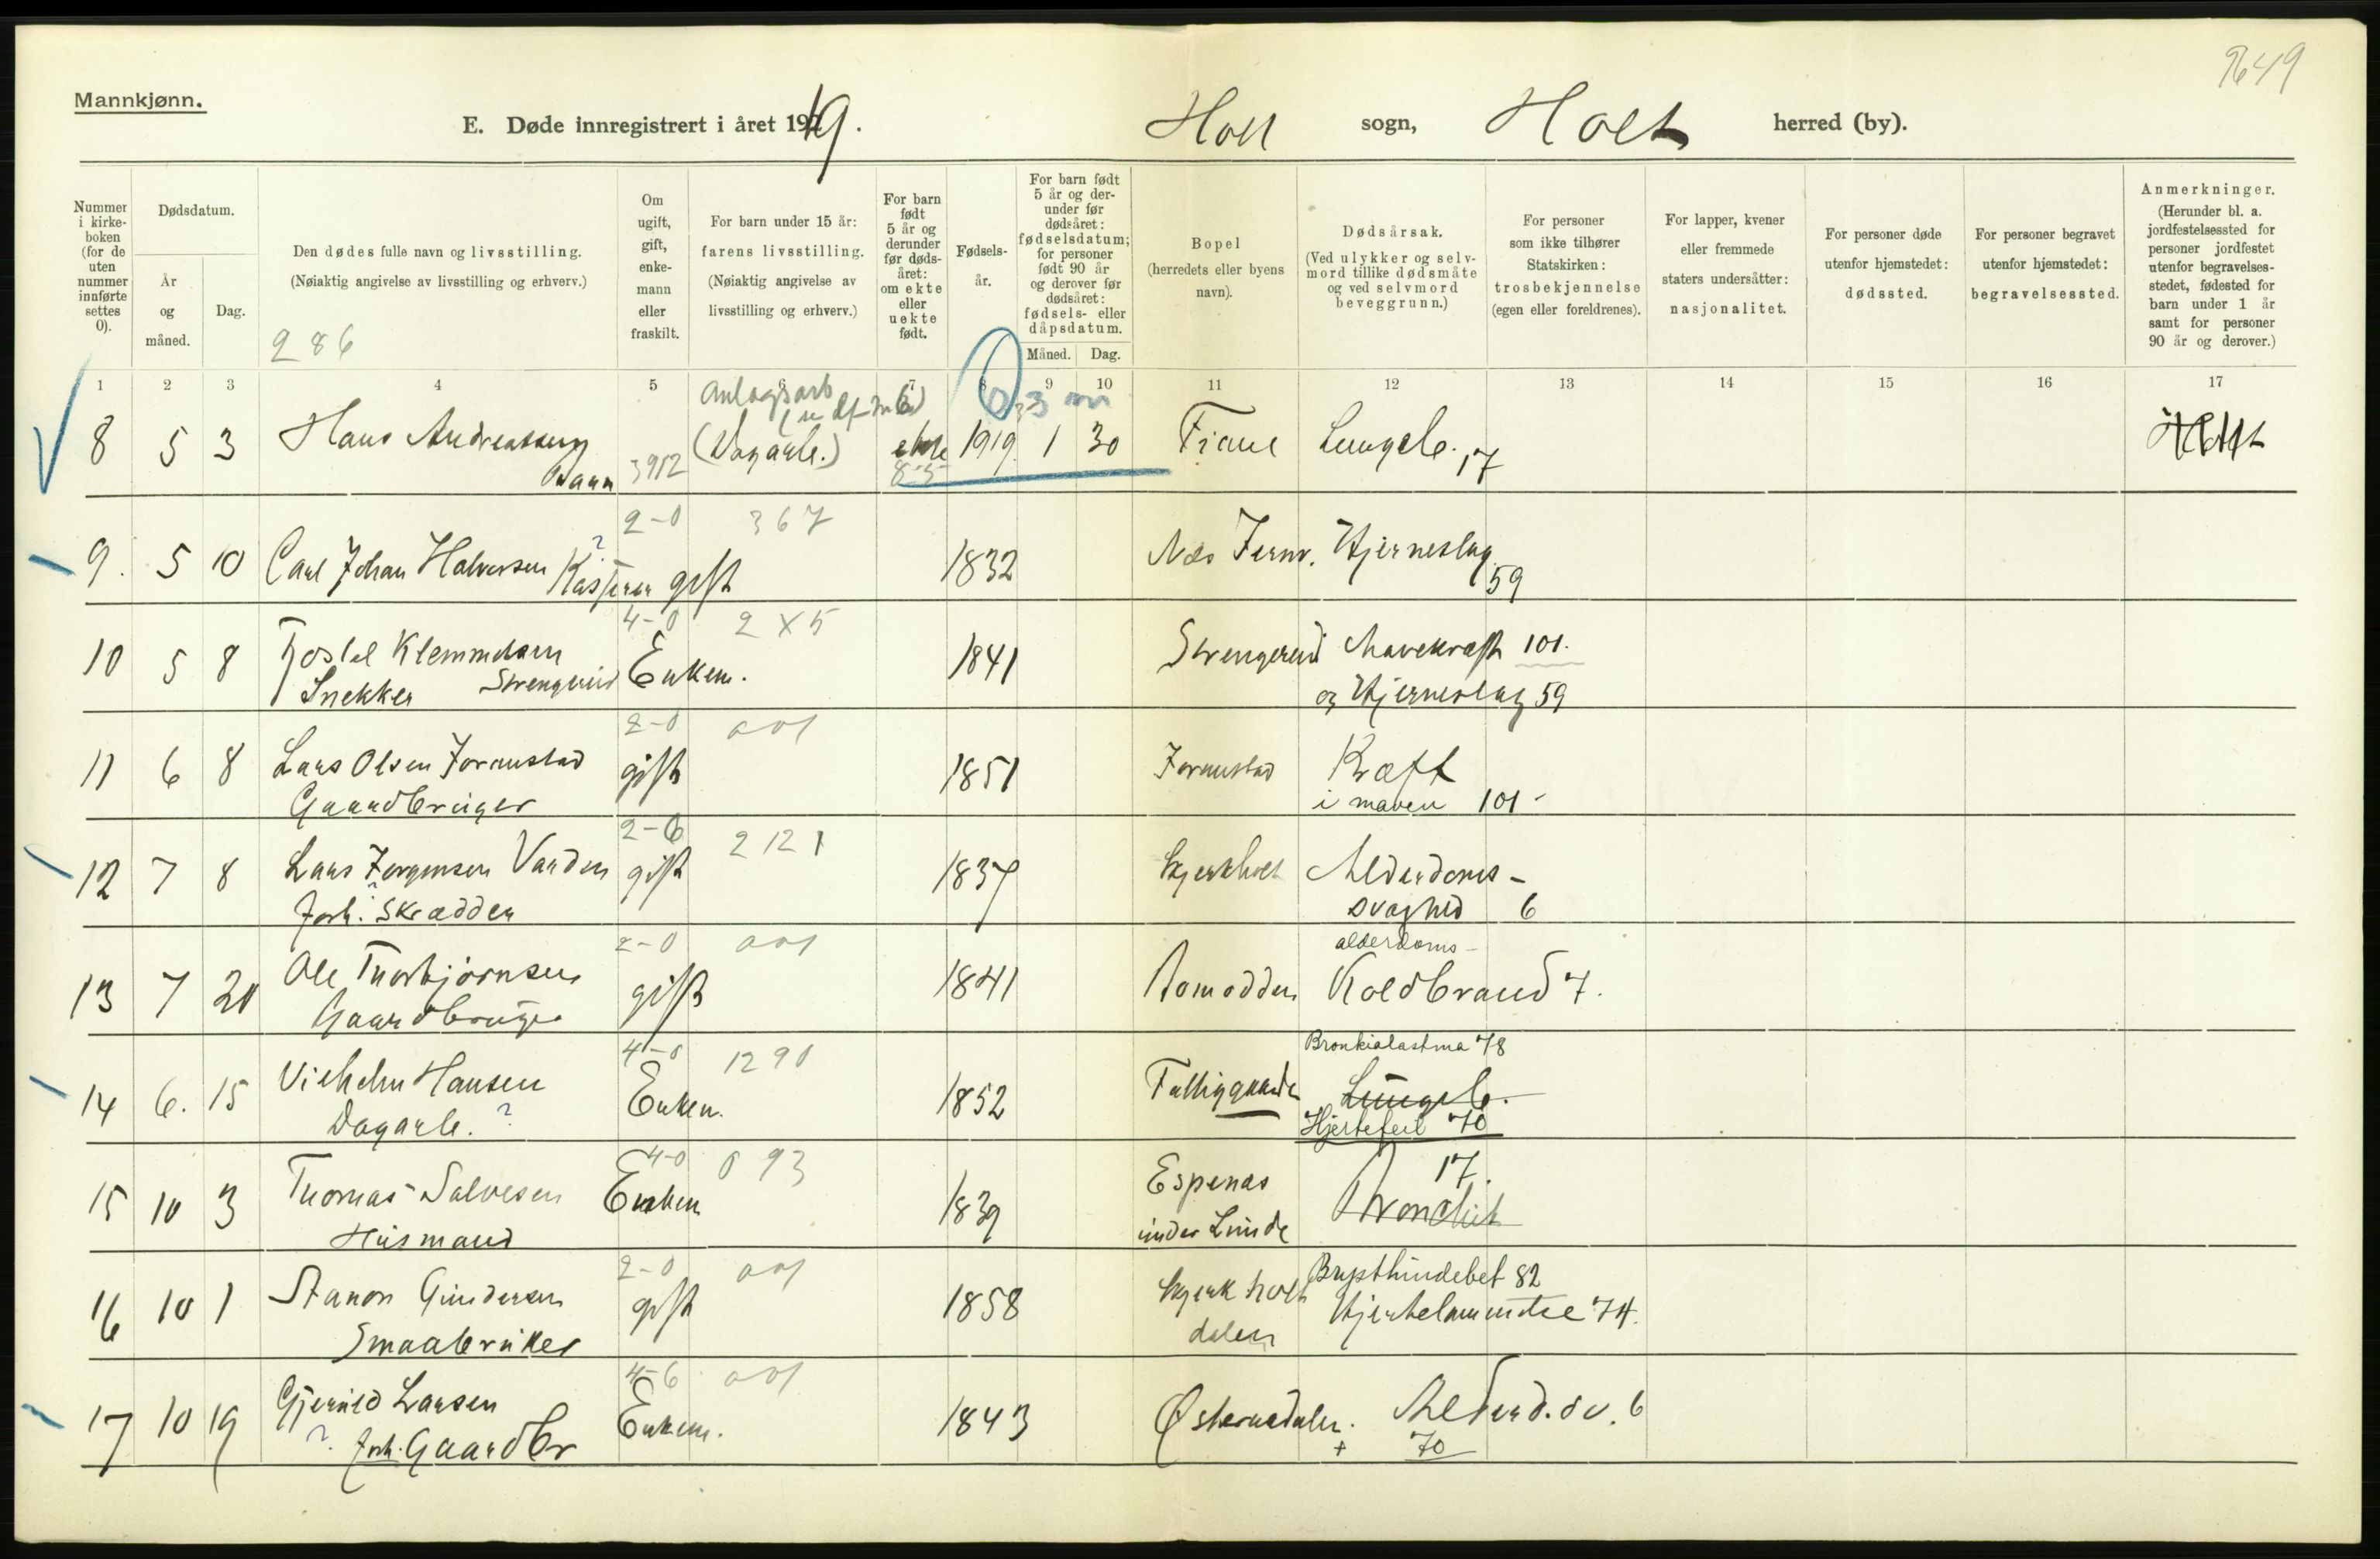 9649
Mannkjønn.
E. Døde innregistrert i året 1919.
Holt sogn, Holt herred (by).
Nummer i kirkeboken (for de uten nummer innførte settes 0).
Dødsdatum.
År og måned.
Dag.
Den dødes fulle navn og livsstilling.
(Nøiaktig angivelse av livsstilling og erhverv.)
286
Om ugift, gift, enkemann eller fraskilt.
For barn under 15 år: farens livsstilling.
(Nøiaktig angivelse av livsstilling og erhverv.)
For barn født 5 år og derunder før dødsåret: om ekte eller uekte født.
Fødselsår.
For barn født 5 år og derunder før dødsåret: fødselsdatum; for personer født 90 år og derover før dødsåret: fødsels- eller dåpsdatum.
Måned. Dag.
Bopel
(herredets eller byens navn).
Dødsårsak.
(Ved ulykker og selvmord tillike dødsmåte og ved selvmord beveggrunn.)
For personer som ikke tilhører Statskirken: trosbekjennelse (egen eller foreldrenes).
For lapper, kvener eller fremmede staters undersåtter: nasjonalitet.
For personer døde utenfor hjemstedet: dødssted.
For personer begravet utenfor hjemstedet: begravelsessted.
Anmerkninger.
(Herunder bl. a. jordfestelsessted for personer jordfestet utenfor begravelsesstedet, fødested for barn under 1 år samt for personer 90 år og derover.)
1 2 3 4 5 6 7 8 9 10 11 12 13 14 15 16 17
Anlagsarb
0 3 m
8 5 3 Hans Andreassen (Dagarb.) ekte 1919 1 30 Fiane Lungeb. 17 Holt
Barn 3912 8-5
2-0 367
9. 5 10 Carl Johan Halvorsen Kasserer gift 1832 Næs Jernv. Hjerneslag
59
4-0 2X5
10 5 8 Tjostel Klemmetsen Enkem. 1841 Strengereid Mavekræft 101.
Snekker Strengereid og Hjerneslag 59
2-0 001
11 6 8 Lars Olsen Joranstad gift 1851 Joranstad Kræft
Gaardbruger i maven 101-
2-6 2121
12 7 8 Lars Jørgensen Varden gift 1837 Bjerkholt Alderdoms-
forh. Skrædder svaghed 6
2-0 001 alderdoms-
13 7 20 Ole Thorbjørnsen gift 1841 Aamodden Koldbrand 7.
Gaardbruger
4-0 1290 Bronkialastma 78
14 6. 15 Vilhelm Hansen Enkem. 1852 Fattiggaarden Lungeb.
Dagarb. ? Hjertefeil 70
4-0 093 17.
15 10 3 Thomas Salvesen Enkem 1839 Espenæs Bronchit
Husmand under Lunde
2-0 001 Brysthindebet 82
16 10 1 Stanon Gundersen gift 1858 Bjerkholt Hjertelammelse 74.
Smaabruker dalen
4-6 001
17 10 19 Gjeruld Larsen Enkem. 1843 Østeraadalen. Alderd. sv. 6
? forh. Gaardbr + 70